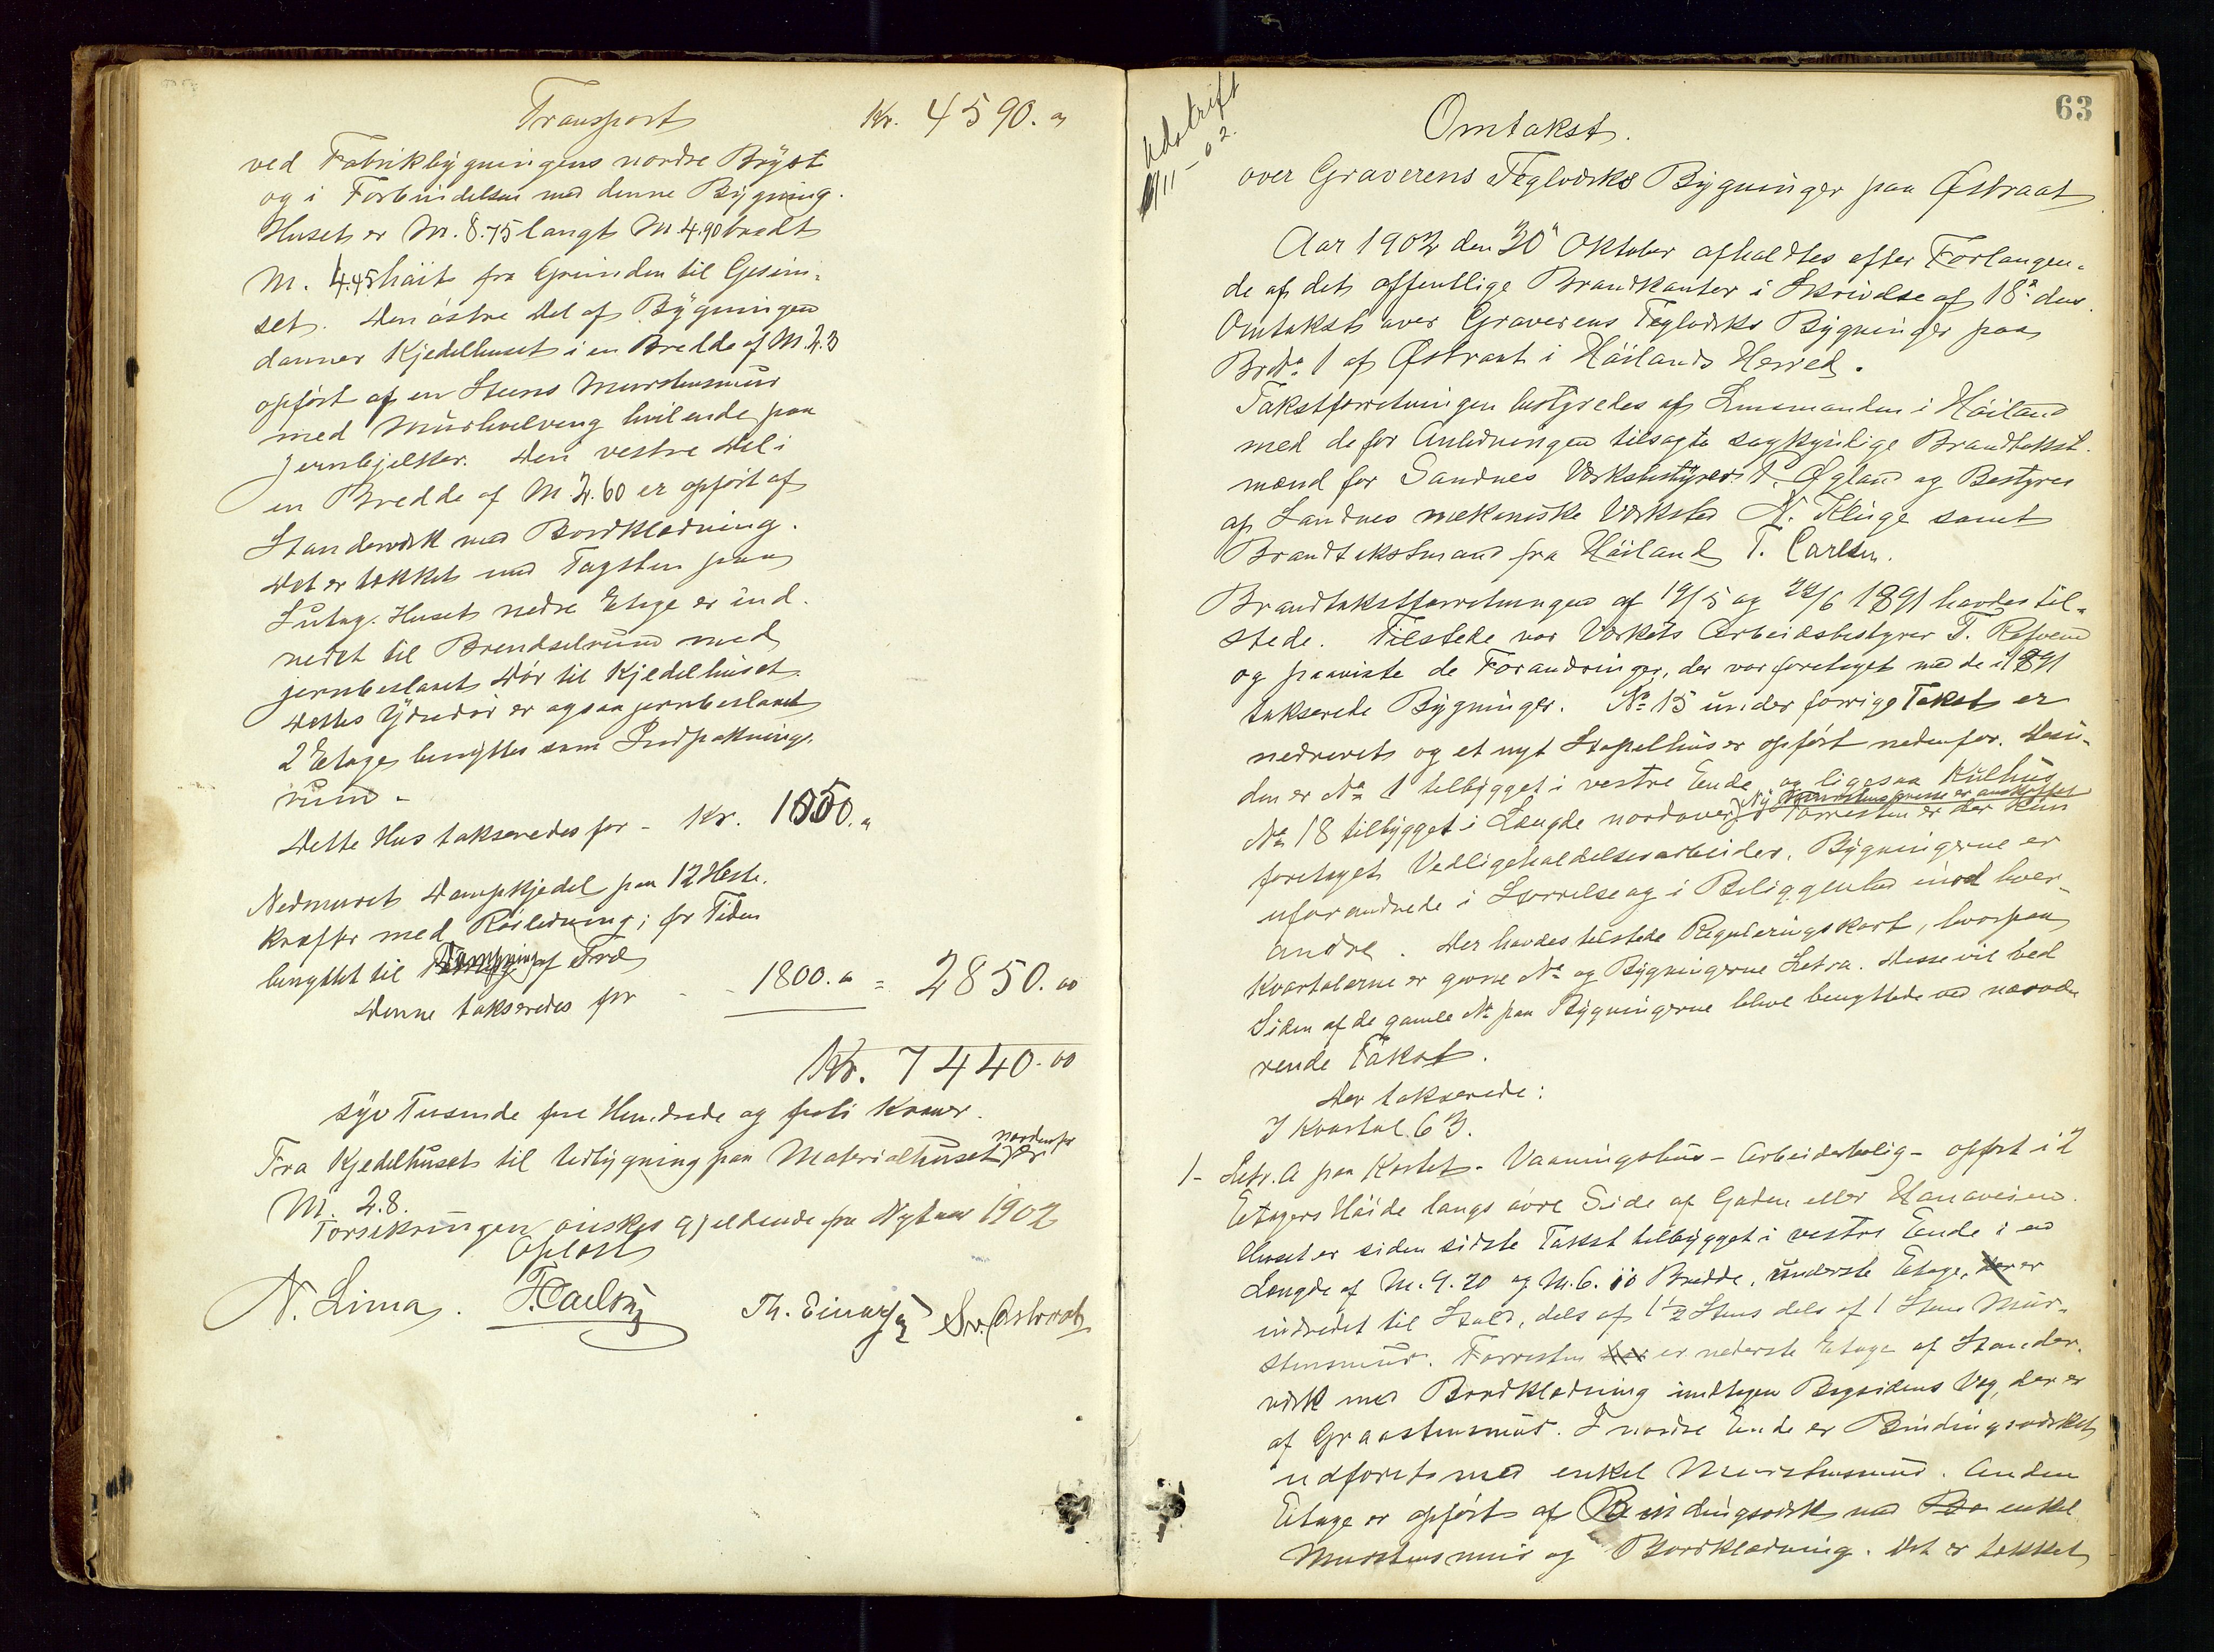 Transport Kr. 4590.
ved Fabrikbygningens nordre Bryst
og i Forbindelsen med denne Bygning.
Huset er M. 8.75 langt M. 4.90 bredt
M. 4.45 høit fra Grunden til Gesim-
set. Den østre Del af Bygningen
danner Kjedelhuset i en Bredde af M. 2.3
opført af en Steens Murstensmur
med Murhvelving hvilende paa
Jernbjelker. Den vestre Del i
en Bredde af M. 2.60 er opført af
Standerværk med Bordklædning.
Det er tækket med Tagsten paa
Sutag. Husets nedre Etage er ind-
redet til Brendselrum med
jernbeslaaet Dør til Kjedelhuset.
Dettes Ydredør er ogsaa jernbeslaaet
2 Etage benyttes som Indpaknings-
rum -
Dette Hus takseredes for - Kr. 1050.
Nedmuret Dampkjedel paa 12 Heste-
kræfter med Rørledning; for Tiden
benyttet til Dampning af Træ
Denne takseredes for - - 1800. = 2850.00
Kr. 7440.00
syv Tusinde fire Hundrede og firti Kroner.
Fra Kjedelhuset til Udbygning paa Materialhuset nordenfor er
M. 2.8.
Forsikringen ønskes gjeldende fra Nytaar 1902
Oplæst
N. Lima. T. Carlsen Th. Einarsen Sv. Østraat
Udskrift
/11-02.
63
Omtakst.
over Graverens Teglværks Bygninger paa Østraat
Aar 1902 den 30 Oktober afholdtes efter Forlangen-
de af det offentlige Brandkontor i Skrivelse af 18 ds.
Omtakst over Graverens Teglværks Bygninger paa
Br.No 1 af Østraat i Høilands Herred.
Takstforretningen bestyredes af Lensmanden i Høiland
med de for Anledningen tilsagte sagkyndige Brandtakst-
mænd for Sandnes Værksbestyrer T. Øgland og Bestyrer
af Sandnes mekaniske Værksted N. Kluge samt
Brandtakstmand fra Høiland T. Carlsen.
Brandtakstforretningen af 19/5 og 22/6 1891 havdes til-
stede. Tilstede var Værkets Arbeidsbestyrer T. Refvem
og paaviste de Forandringer, der var foretaget med de i 1891
takserede Bygninger. No 15 under forrige Takst er
nedrevet og et nyt Stapelhus er opført nedenfor. Desu-
den er No 1 tilbygget i vestre Ende og ligesaa Kulhus
No 18 tilbygget i Længde nordover. Ny Murstenspresse er anskaffet Forresten er der kun
foretaget Vedligeholdelsesarbeider. Bygningerne er
uforandrede i Størrelse og i Beliggenhed imod hver-
andre. Der havdes tilstede Reguleringskart, hvorpaa
Kvartalerne er givne No og Bygningerne Letra. Disse vil ved
Siden af de gamle No paa Bygningerne blive benyttede ved nærvæ-
rende Takst.
Der takserede:
I Kvartal 63.
1- Letr. A paa Kartet - Vaaningshus - Arbeiderbolig - opført i 2
Etagers Høide langs øvre Side af Gaden eller Hanaveien.
Huset er siden sidste Takst tilbygget i vestre Ende i en
Længde af M. 9.20 og M. 6.10 Bredde, underste Etage, der er
indredet til Stald, dels af 1 1/2 Stens dels af 1 Stens Mur-
stensmur. Forresten er nederste Etage af Stander-
værk med Bordklædning undtagen Bagsidens Væg, der er
af Graastensmur. I nordre Ende er Bindingsværket
udforet med enkel Murstensmur. Anden
Etage er opført af Bindingsværk med enkel
Murstensmur og Bordklædning. Det er tækket